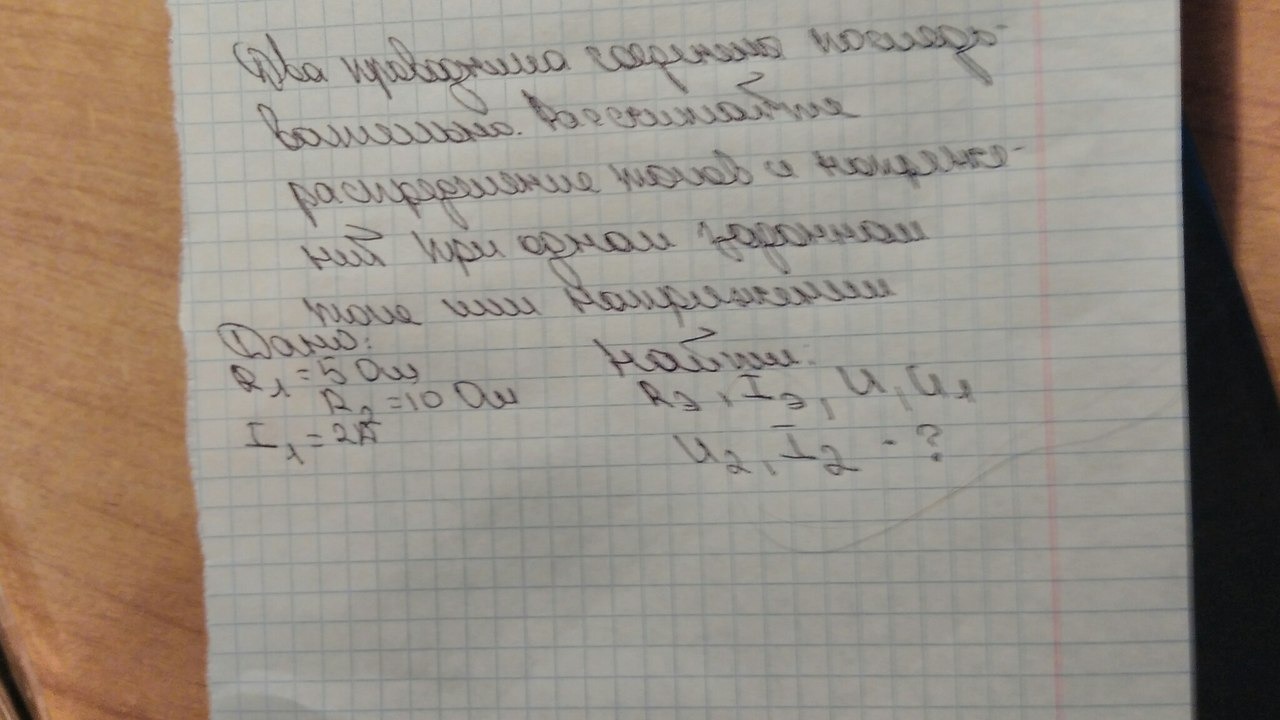 Два проводника соединено последо-
вательно. Рассчитайте
распределение токов и напряже-
ний при одном заданном
токе или напряжении
Дано:
R₁ = 5 Ом
R₂ = 10 Ом
I₁ = 2А
Найти:
Rэ, Iэ, U, U₁
U₂, I₂ - ?